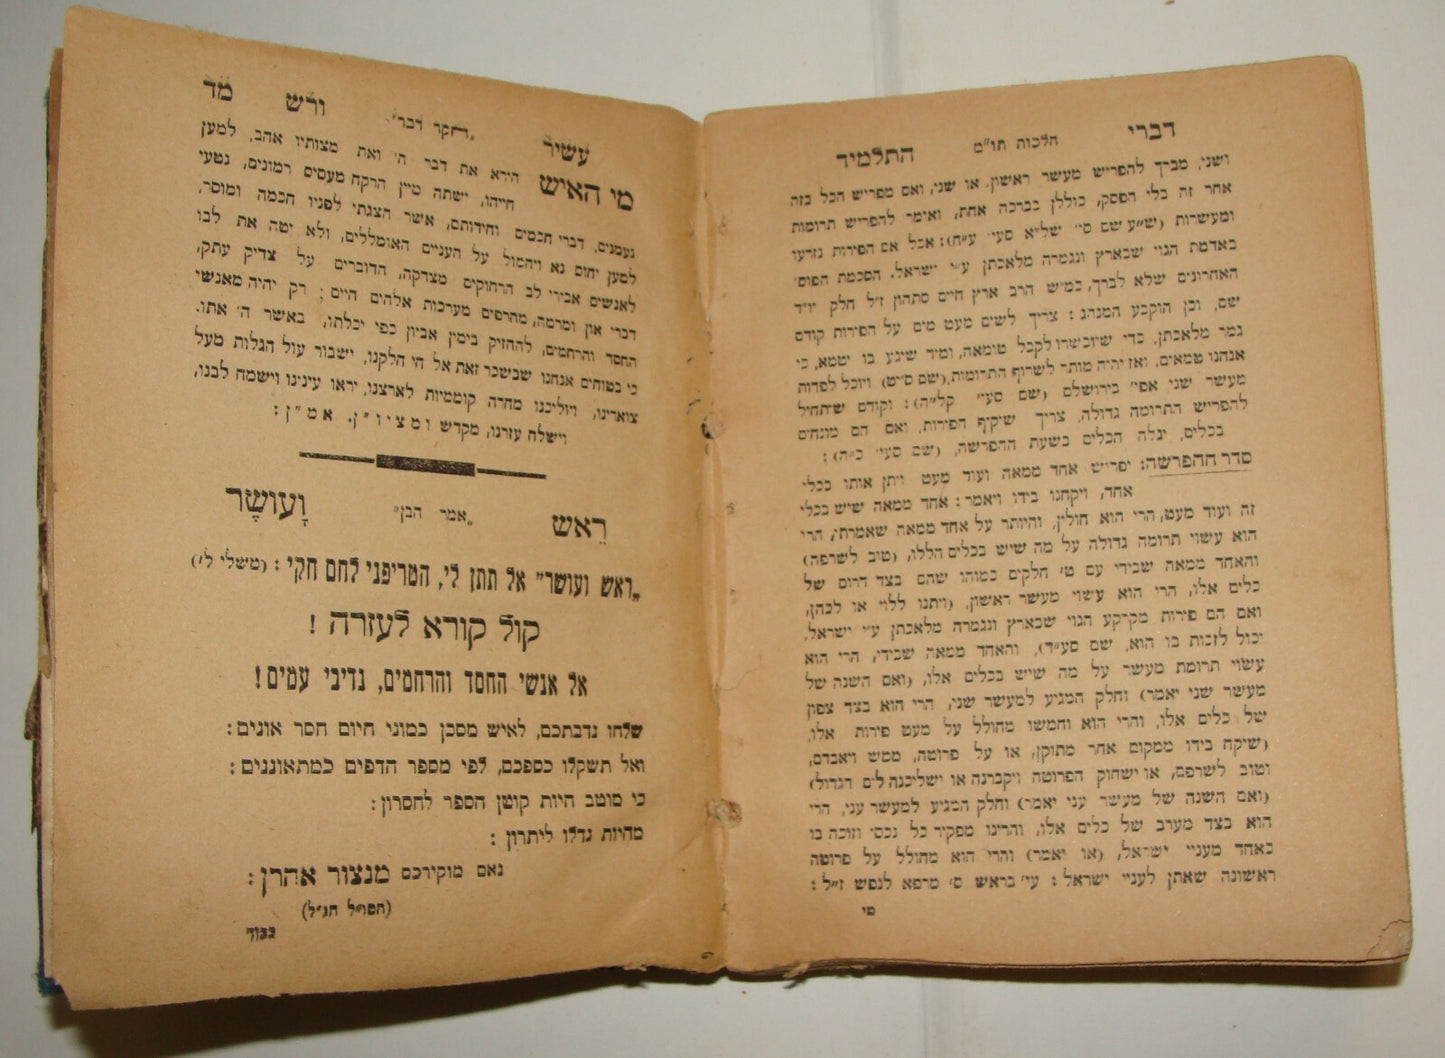 דברי הלכות תו"מ התלמיד
ושני, מביך להפריש מעשר ראשון, או שני, ואם מפריש הכל בזה
אחר זה בלי הפסק, כוללן בברכה אחת, ואומר להפריש תרומות
ומעשרות (ש"ע שם סי' של"א סעי' ע"ח): אבל אם הפירות נזרעו
באדמת הגוי שבארץ ונגמרה מלאכתן ע"י ישראל. הסכמת הפוס'
האחרונים שלא לברך, כמ"ש הרב ארץ חיים סתהון ז"ל חלק יו"ד
שם, וכן הוקבע המנהג: צריך לשים מעט מים על הפירות קודם
גמר מלאכתן, כדי שיוכשרו לקבל טומאה, ומיד שיגע בו יטמא, כי
אנחנו טמאים, ואז יהיה מותר לשרוף התרומות, (שם ס"ט) ויוכל לפדות
מעשר שני אפי' בירושלם (שם סעי' קל"ה): וקודם שיתחיל
להפריש התרומה גדולה, צריך שיקיף הפירות, ואם הם מונחים
בכלים, יגלה הכלים בשעת ההפרשה, (שם סעי' כ"ה):
סדר ההפרשה: יפריש אחד ממאה ועוד מעט ויתן אותו בכלי
אחד, ויקחנו בידו ויאמר: אחד ממאה שיש בכלי
זה ועוד מעט, הרי הוא חולין, והיותר על אחד ממאה שאמרתי, הרי
הוא עשוי תרומה גדולה על מה שיש בכלים הללו, (טוב לשרפה)
והאחד ממאה שבידי עם ט' חלקים כמוהו שהם בצד דרום של
כלים אלו, הרי הוא עשוי מעשר ראשון, (ויתנו ללוי או לכהן,
ואם הם פירות מקרקע הגוי שבארץ ונגמרה מלאכתן ע"י ישראל,
יכול לזכות בו הוא, שם סע"ד), והאחד ממאה שבידי, הרי הוא
עשוי תרומת מעשר על מה שיש בכלים אלו, (ואם השנה של
מעשר שני יאמר) וחלק המגיע למעשר שני, הרי הוא בצד צפון
של כלים אלו, והרי הוא וחמשו מחולל על מעט פירות אלו,
(שיקח בידו ממקום אחר מתוקן, או על פרוטה, ממש ויאבדם,
וטוב לשרפם, או ישחוק הפרוטה ויקברנה או ישליכנה לים הגדול)
(ואם השנה של מעשר עני יאמר) וחלק המגיע למעשר עני, הרי
הוא בצד מערב של כלים אלו, והרינו מפקיר כל נכסי וזוכה בו
כאחד מעניי ישראל, (או יאמר) והרי הוא מחולל על פרוטה
ראשונה שאתן לעניי ישראל: עי' בראש ס' מרפא לנפש ז"ל:
פי
עשיר "חקר דבר" ורש מד
מי האיש הירא את דבר ה' ואת מצותיו אהב, למען
חייהו, ישתה מיין הרקח מעסיס רמונים, נטעי
נעמנים, דברי חכמים וחידותם, אשר הצגתי לפניו חכמה ומוסר,
למען יחוס נא ויחמול על העניים האומללים, ולא יטה את לבו
לאנשים אבירי לב הרחוקים מצדקה, הדוברים על צדיק עתק,
דברי און ומרמה, מחרפים מערכות אלהים חיים; רק יהיה מאנשי
החסד והרחמים, להחזיק בימין אביון כפי יכלתו, באשר ה' אתו.
כי בטוחים אנחנו שבשכר זאת אל חי חלקנו, ישבור עול הגלות מעל
צוארינו, ויוליכנו מהרה קוממיות לארצנו, יראו עינינו וישמח לבנו,
וישלח עזרנו, מקדש ומציו"ן. אמ"ן:
רֵאש "אמר הבן" וָעוֹשֶר
"ראש ועושר" אל תתן לי, הטריפני לחם חקי: (משלי ל')
קול קורא לעזרה!
אל אנשי החסד והרחמים, נדיבי עמים!
שלחו נדבתכם, לאיש מסכן כמוני חיום חסר אונים:
ואל תשקלו כספכם, לפי מספר הדפים כמתאוננים:
כי מוטב היות קוטן הספר לחסרון:
מהיות גדלו ליתרון:
נאם מוקירכם מנצור אהרן:
(הסו"ל הנ"ל)
בבוד